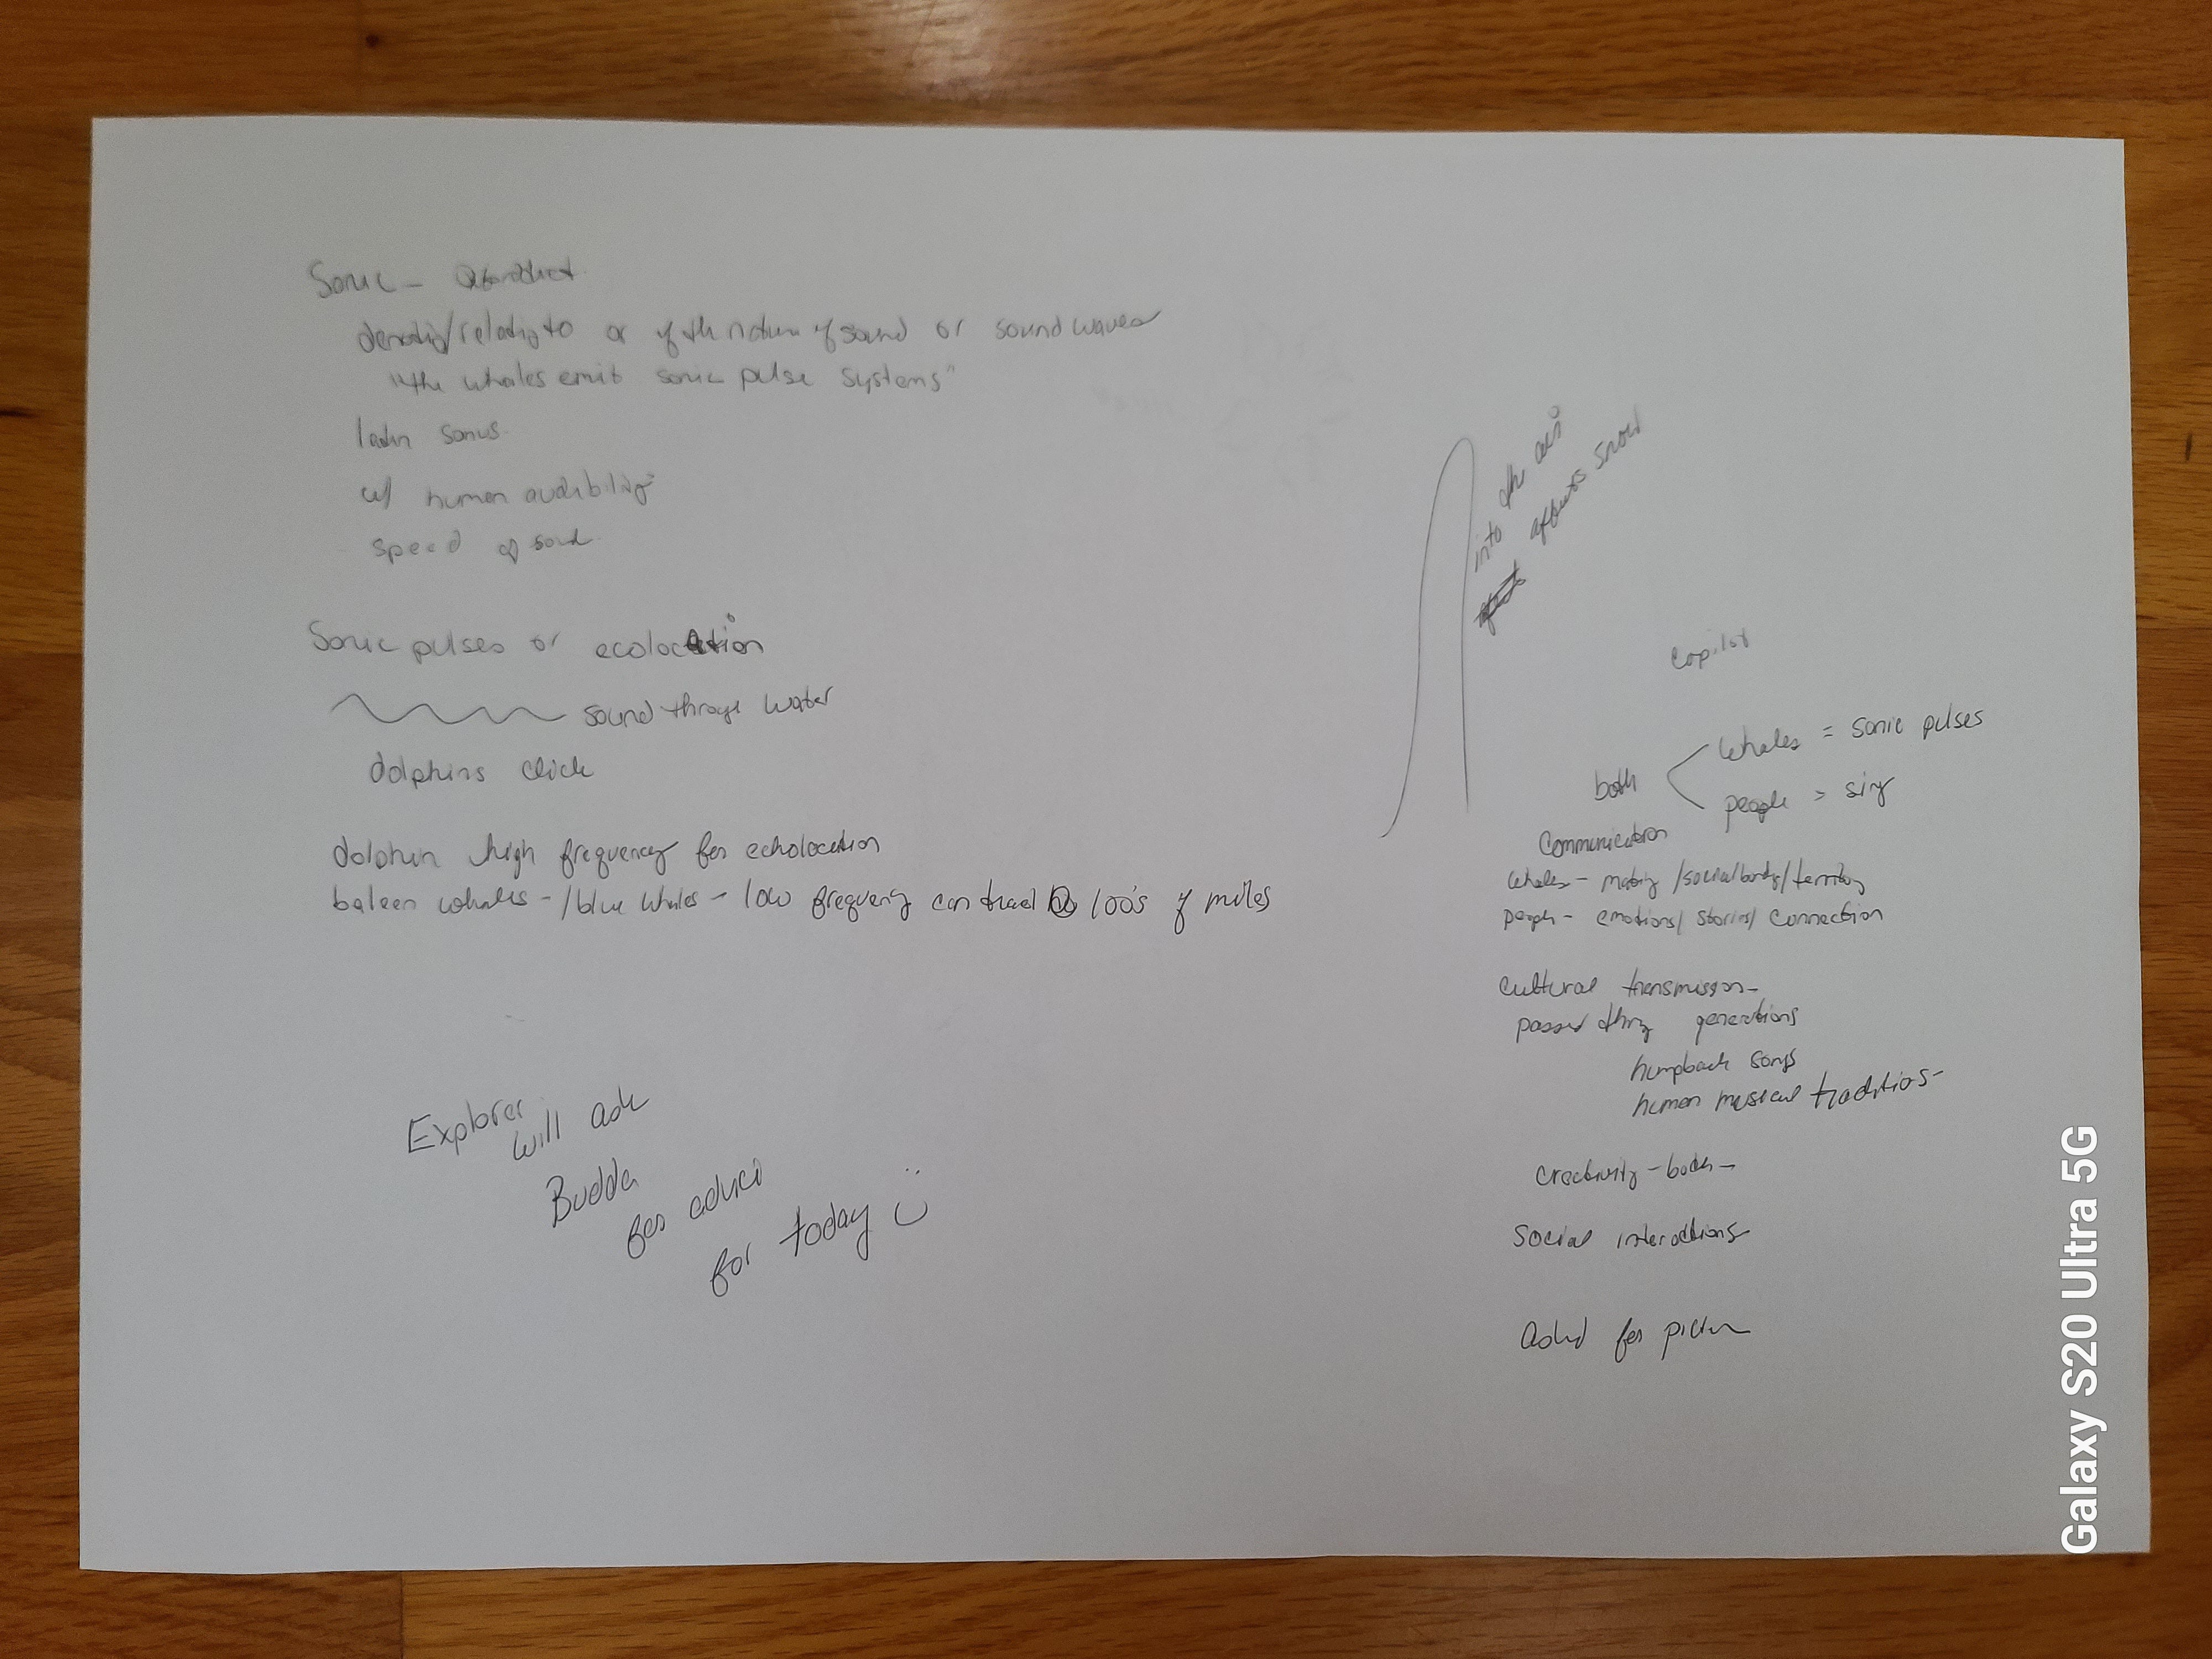 Sonic -
denoting/relating to or of the nature of sound or sound waves
"the whales emit sonic pulse systems"
latin sonus
w/ human audibility
speed of sound
Sonic pulses or ecolocation
sound through water
dolphins click
dolphin high frequency for echolocation
baleen whales - / blue whales - low frequency can travel 100's of miles
Explorer
will ask
Budda
for advice
for today
into the air
after snow
copilot
both
whales = sonic pulses
people = sing
Communication
whales - mating / social body / territory
people - emotions / stories / connection
cultural transmission -
passed thru generations
humpback songs
human musical traditions -
creativity - both -
social interactions
asked for picture
Galaxy S20 Ultra 5G